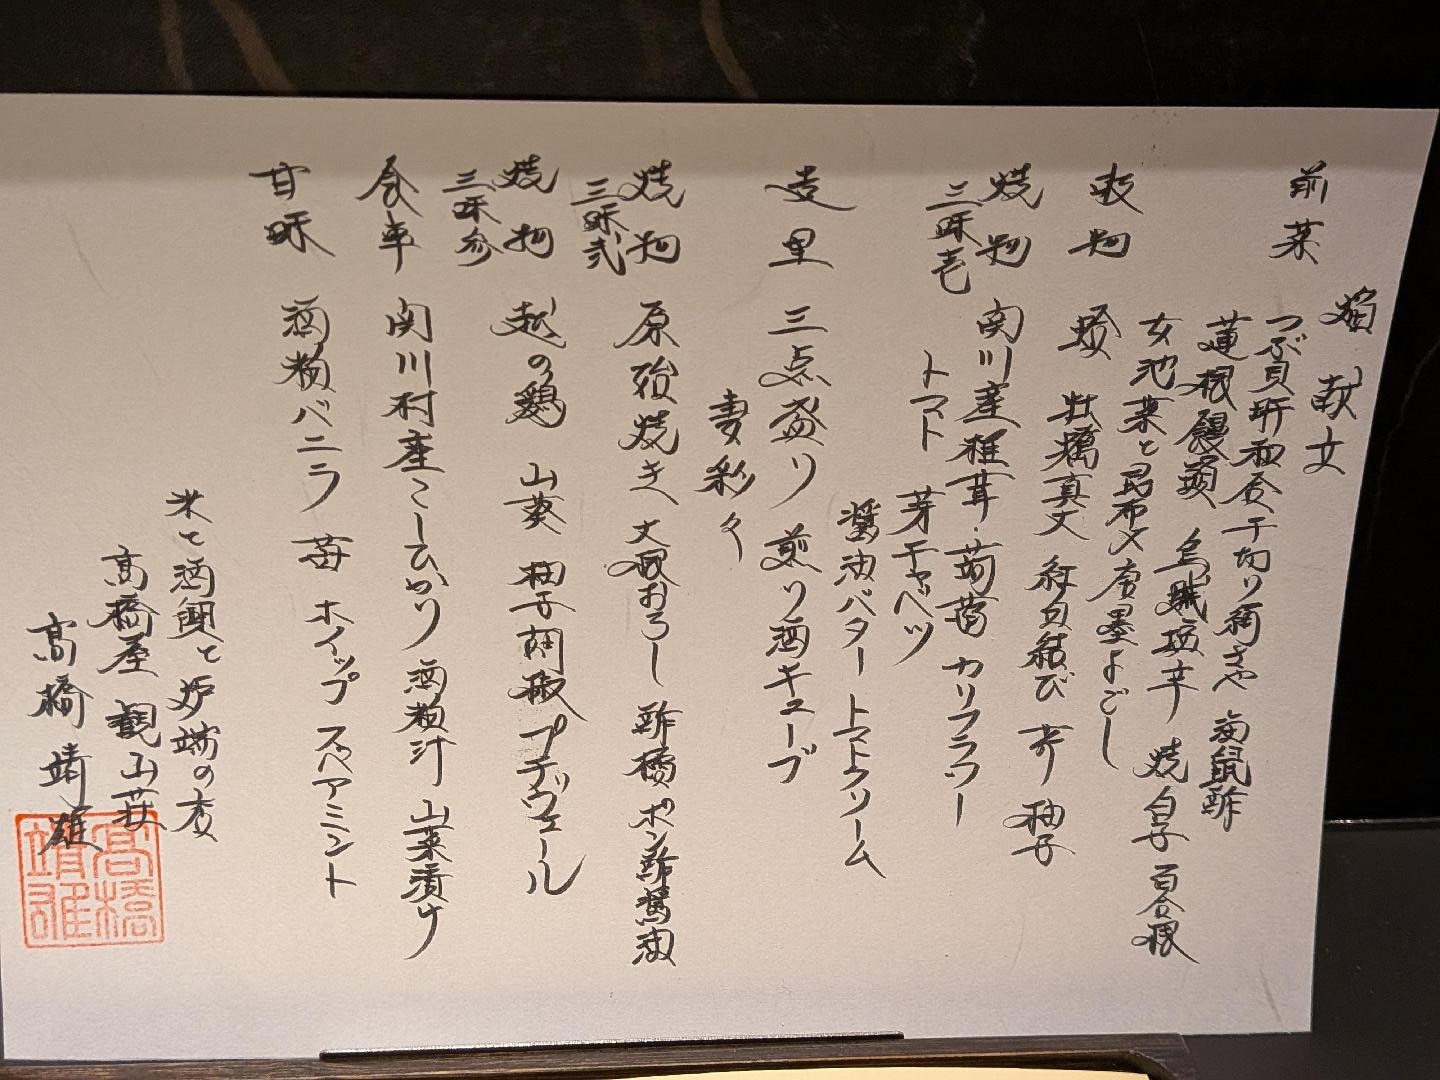 献文
前菜
つぶ貝 和え 千切り絹さや 海鼠酢
蓮根饅頭 烏賊塩辛 焼白子 百合根
女池菜と昆布〆唐墨よごし
牡蠣真丈 紅白結び 芽 柚子
焼物 関川産椎茸・蒟蒻 カリフラワー
三味壱
トマト 芽キャベツ
醤油バター トマトクリーム
三点盛り 煎り酒キューブ
妻彩々
焼物 原始焼き 大根おろし 酢橘ポン酢醤油
三味弐
焼物 越の鶏 山葵 柚子胡椒 プチヴェール
三味参
食事 関川村産こしひかり 酒粕汁 山菜漬け
甘味 酒粕バニラ 苺 ホイップ スペアミント
米と酒 と炉端の宴
髙橋屋 観山荘
髙橋 靖雄
髙橋
靖雄